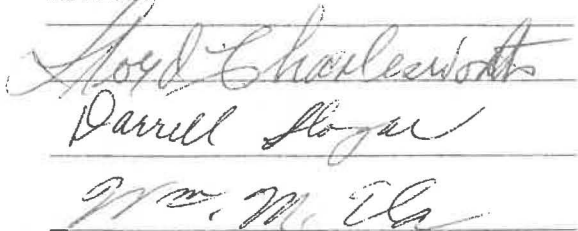 Lloyd Charlesworth
Darrell
Wm. M.